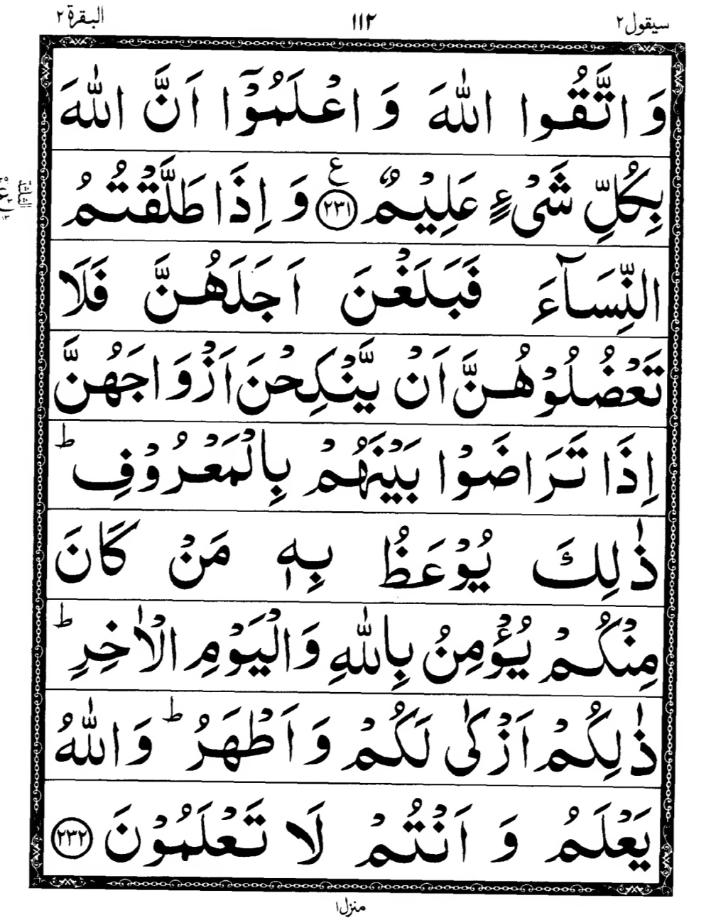 سيقول ٢ ١١٢ البقرة ٢
وَ اتَّقُوا اللّٰهَ وَ اعْلَمُوْۤا اَنَّ اللّٰهَ
بِكُلِّ شَیْءٍ عَلِیْمٌ ﴿۲۳۱﴾ ع وَ اِذَا طَلَّقْتُمُ
النِّسَآءَ فَبَلَغْنَ اَجَلَهُنَّ فَلَا
تَعْضُلُوْهُنَّ اَنْ یَّنْكِحْنَ اَزْوَاجَهُنَّ
اِذَا تَرَاضَوْا بَیْنَهُمْ بِالْمَعْرُوْفِ ؕ
ذٰلِكَ یُوْعَظُ بِهٖ مَنْ كَانَ
مِنْكُمْ یُؤْمِنُ بِاللّٰهِ وَالْیَوْمِ الْاٰخِرِ ؕ
ذٰلِكُمْ اَزْكٰی لَكُمْ وَ اَطْهَرُ ؕ وَاللّٰهُ
یَعْلَمُ وَ اَنْتُمْ لَا تَعْلَمُوْنَ ﴿۲۳۲﴾
منزل ١